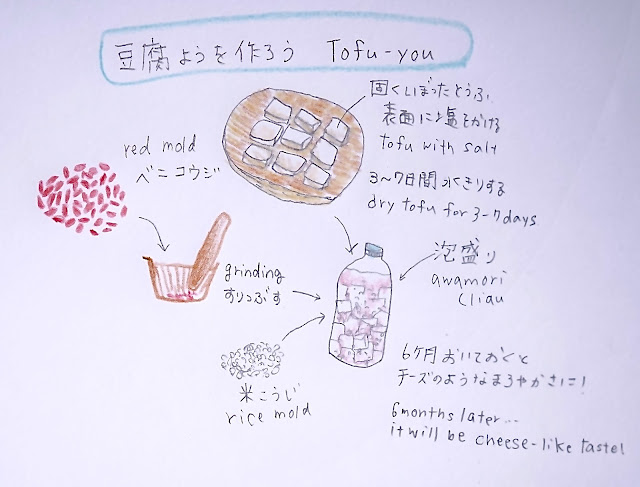 豆腐ようを作ろう Tofu-you
固くしぼったとうふ、
表面に塩をかける
tofu with salt
3~7日間水きりする
dry tofu for 3-7days
red mold
ベニコウジ
grinding
すりつぶす
泡盛り
awamori
米こうじ
rice mold
6ケ月おいておくと
チーズのようなまろやかさに!
6months later...
it will be cheese-like taste!